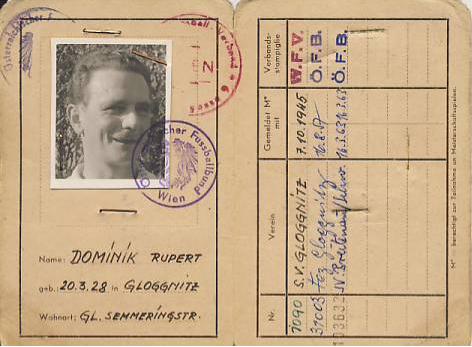 Österreichischer F
Verband
N
cher Fussballbund
Wien
Name: DOMINIK RUPERT
geb. 20.3.28 in GLOGGNITZ
Wohnort: GL. SEMMERINGSTR.
Nr.
Verein
Gemeldet M*
mit
Verbands-
stampiglie
1090 S.V. GLOGGNITZ 7.10.1945 W.F.V.
37003 Gloggnitz 16.8.47 Ö.F.B.
103632 SV 16.3.63 Ö.F.B.
M* = berechtigt zur Teilnahme an Meisterschaftsspielen.